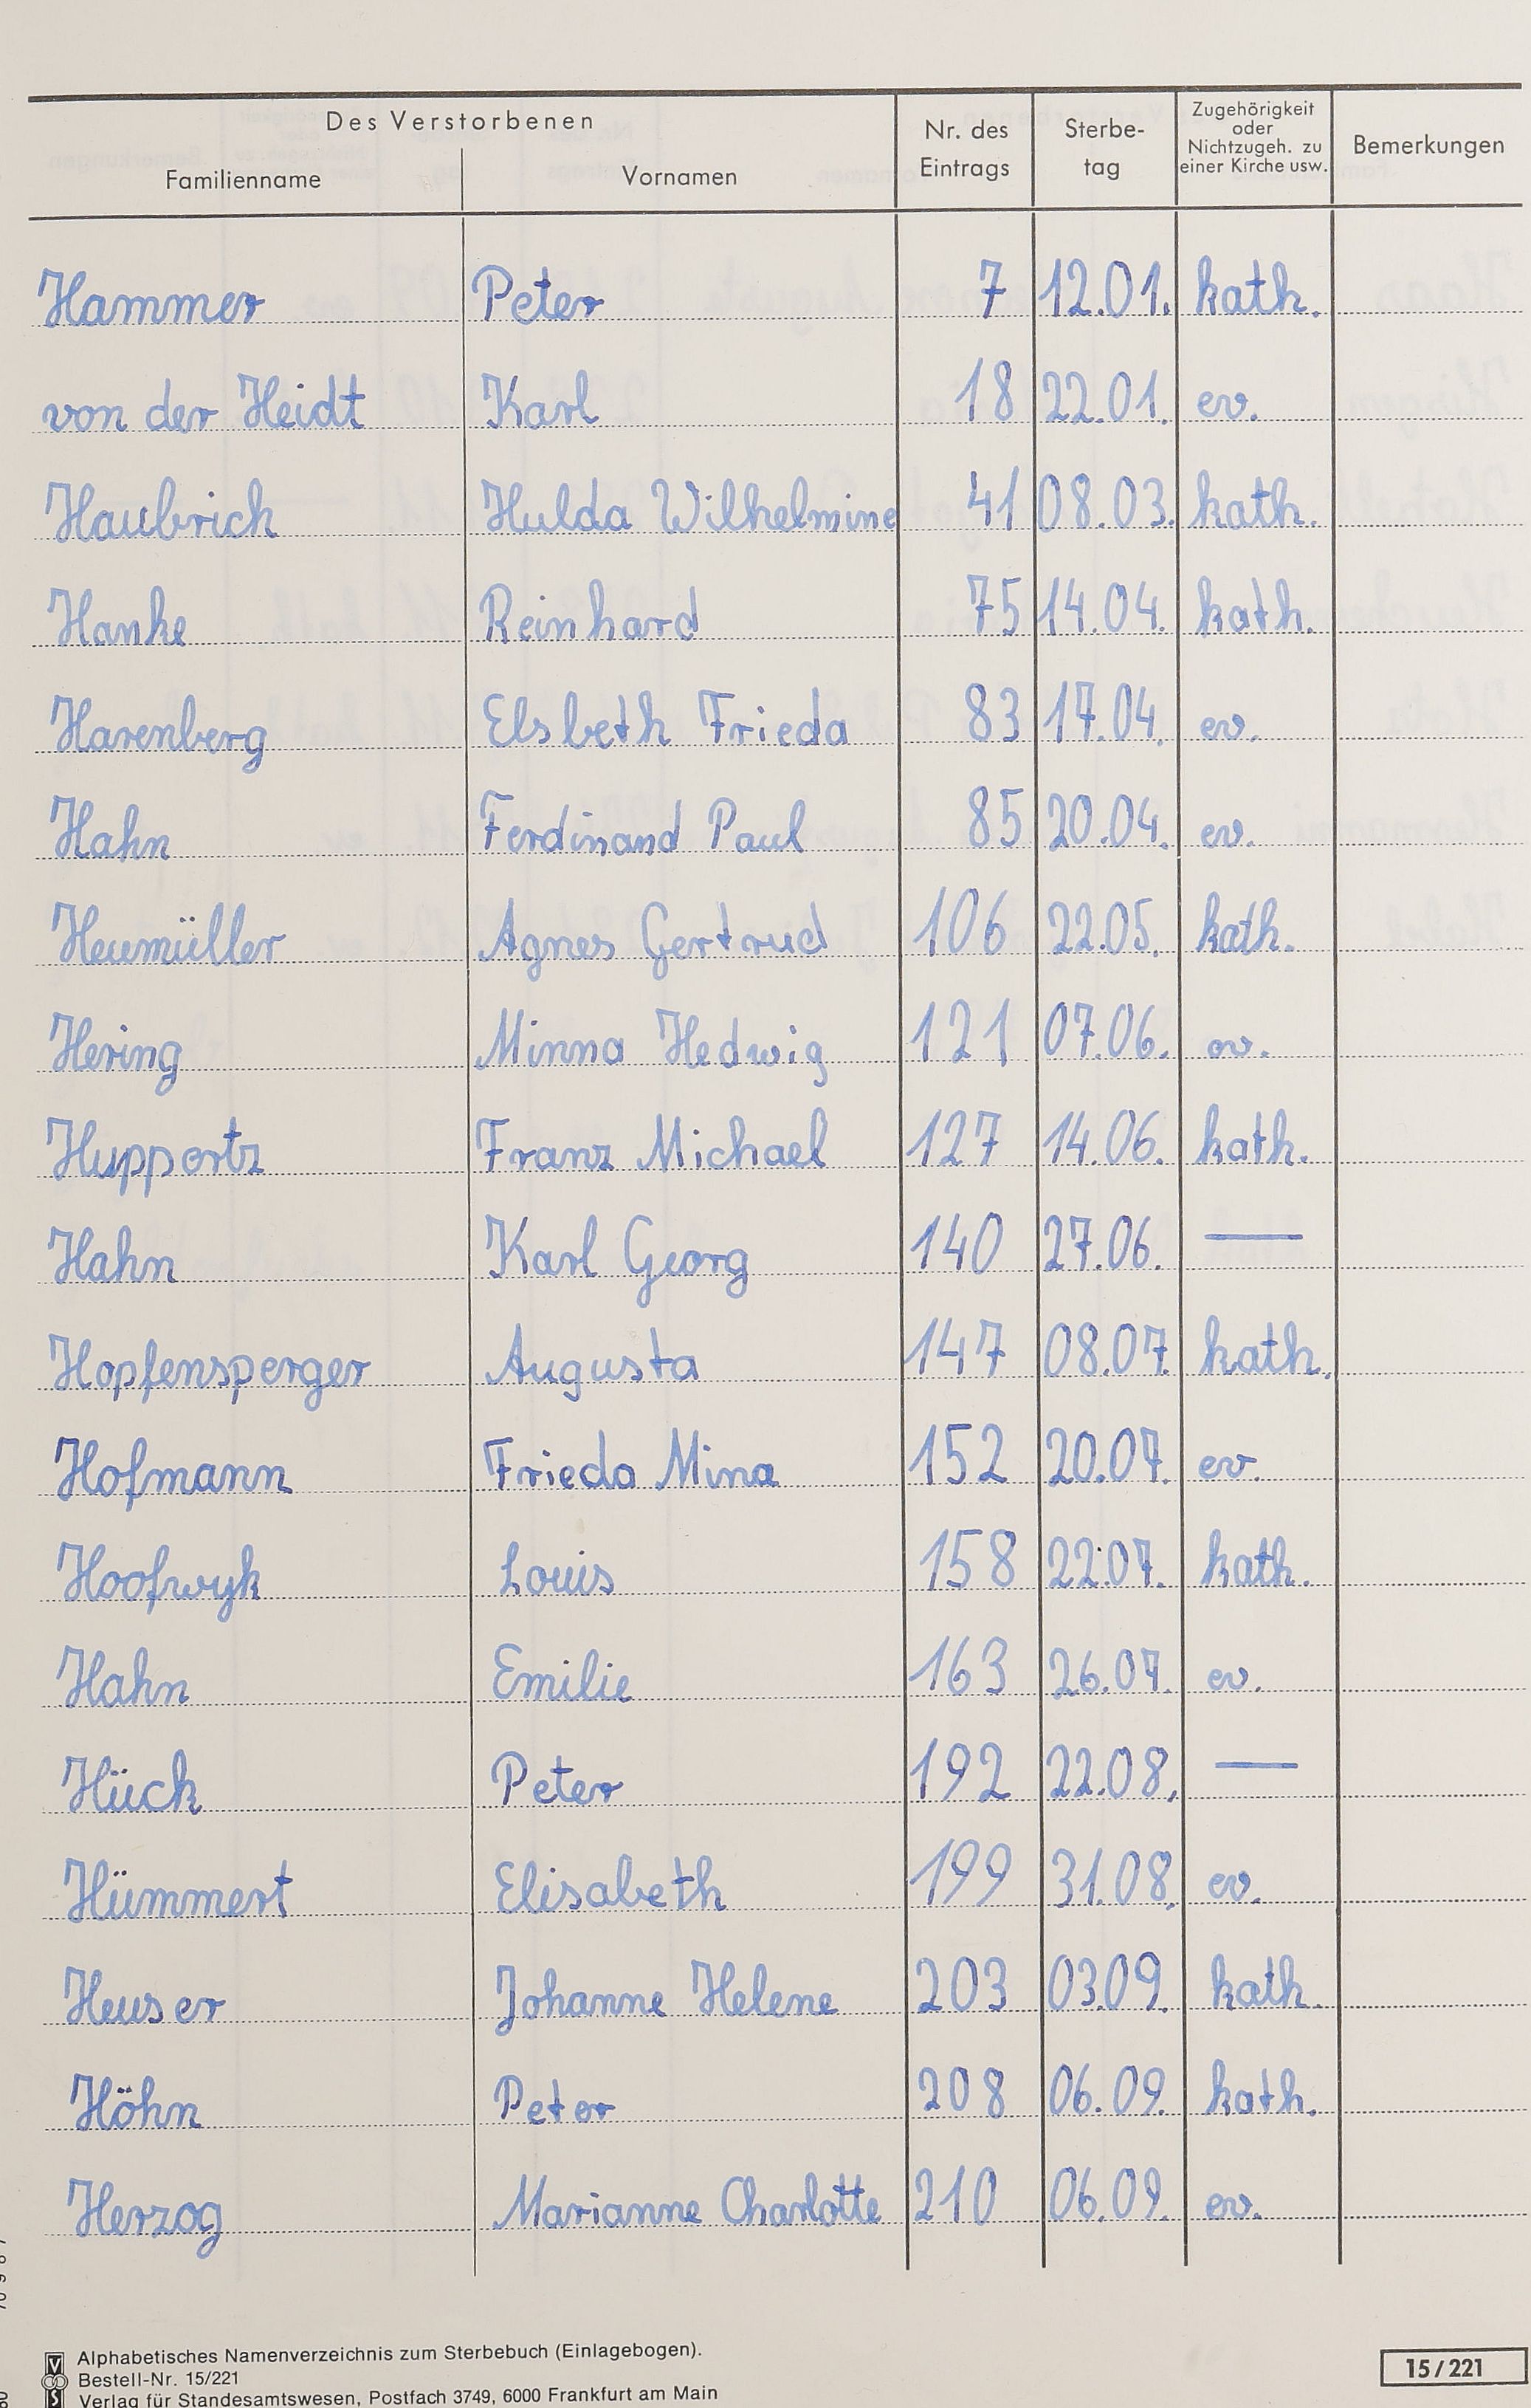 Des Verstorbenen
Familienname Vornamen Nr. des Eintrags Sterbe- tag Zugehörigkeit oder Nichtzugeh. zu einer Kirche usw. Bemerkungen
Hammer Peter 7 12.01. kath.
von der Heidt Karl 18 22.01. ev.
Haubrich Hulda Wilhelmine 41 08.03. kath.
Hanke Reinhard 75 14.04. kath.
Harenberg Elsbeth Frieda 83 17.04. ev.
Hahn Ferdinand Paul 85 20.04. ev.
Heumüller Agnes Gertrud 106 22.05. kath.
Hering Minna Hedwig 121 07.06. ev.
Huppertz Franz Michael 127 14.06. kath.
Hahn Karl Georg 140 27.06. —
Hopfensperger Augusta 147 08.07. kath.
Hofmann Frieda Mina 152 20.07. ev.
Hoofwyk Louis 158 22.07. kath.
Hahn Emilie 163 26.07. ev.
Hück Peter 192 22.08. —
Hümmert Elisabeth 199 31.08. ev.
Heuser Johanne Helene 203 03.09. kath.
Höhn Peter 208 06.09. kath.
Herzog Marianne Charlotte 210 06.09. ev.
Alphabetisches Namenverzeichnis zum Sterbebuch (Einlagebogen).
Bestell-Nr. 15/221
Verlag für Standesamtswesen, Postfach 3749, 6000 Frankfurt am Main
15/221